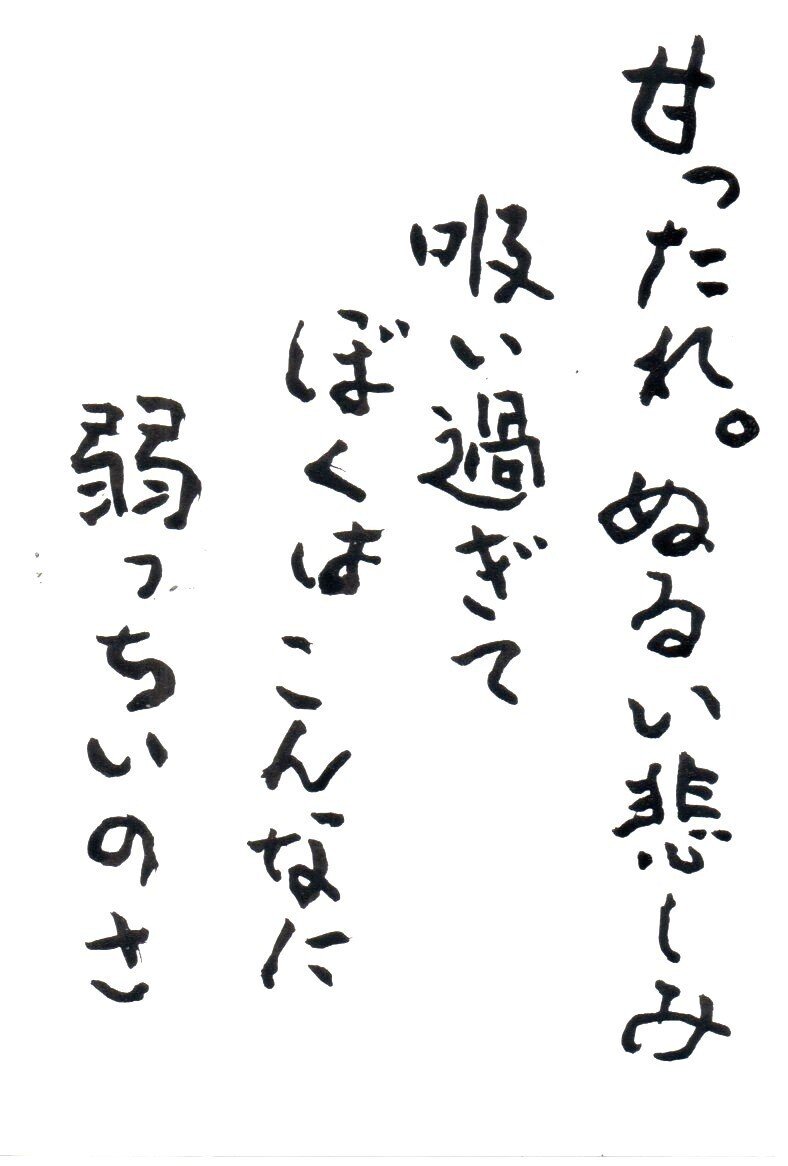 甘ったれ。ぬるい悲しみ
吸い過ぎて
ぼくはこんなに
弱っちいのさ